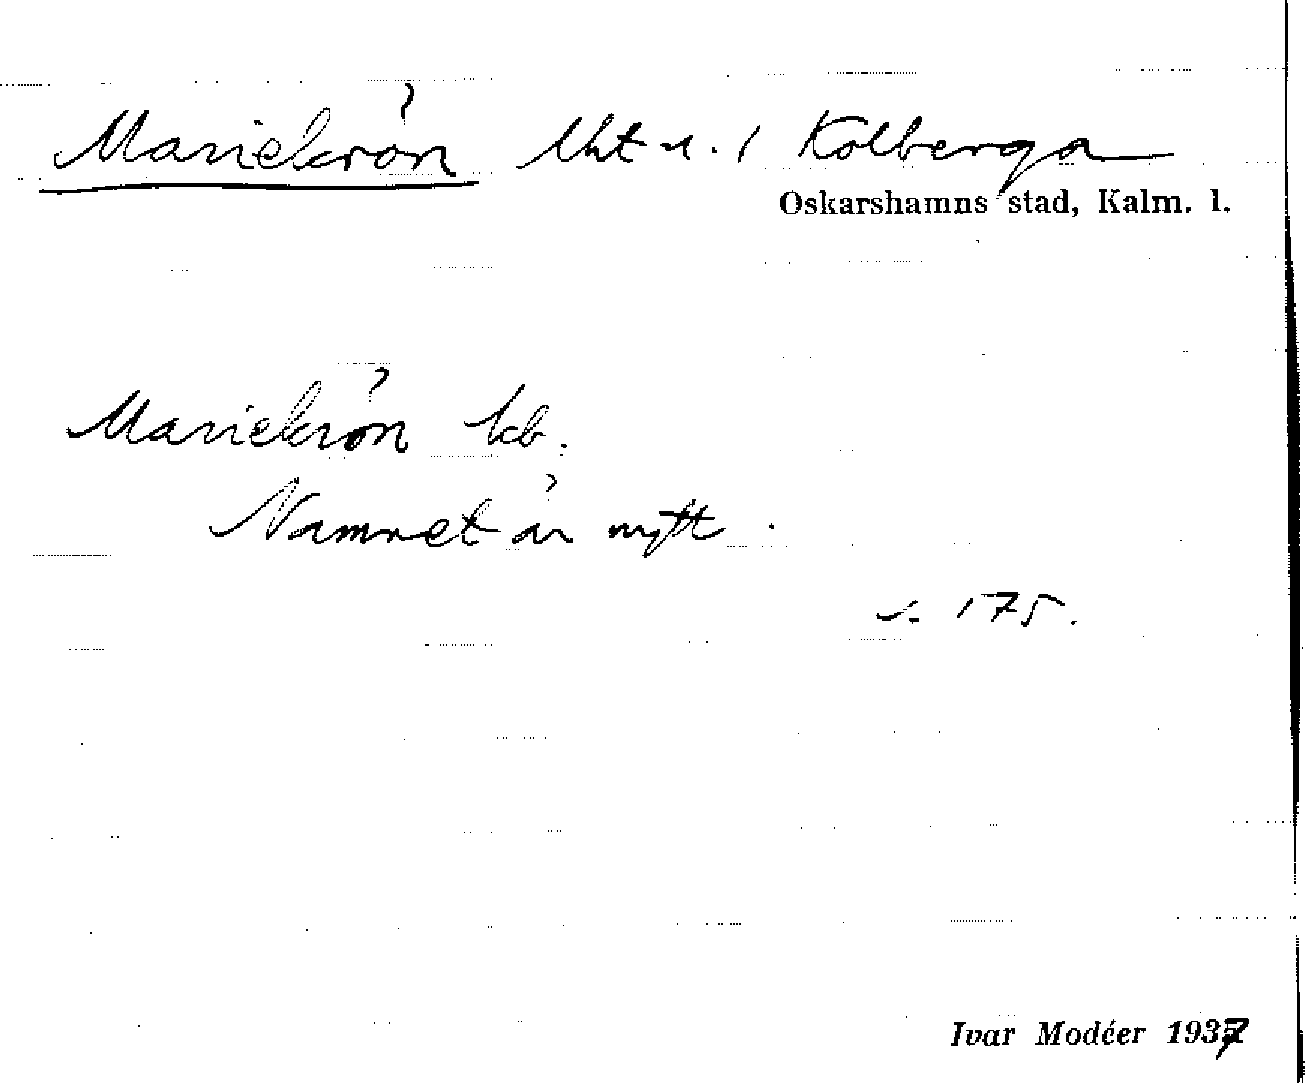 Mariekrön lht u. / Kolberga
Oskarshamns stad, Kalm. l.
Mariekrön kb.
Namnet är nytt.
s. 175.
Ivar Modéer 1937